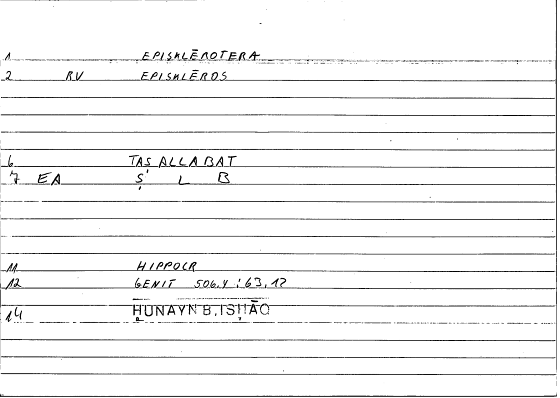 1 EPISKLĒROTERA
2 RV EPISKLĒROS
6 TASALLABAT
7 EA Ṣ L B
11 HIPPOCR
12 GENIT 506.4 : 63,17
14 ḤUNAYN B. ISḤĀQ